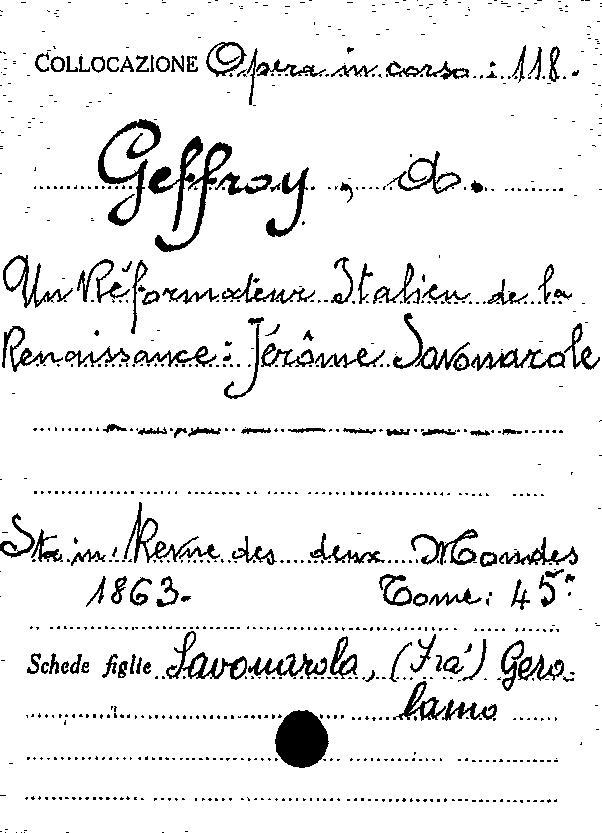 COLLOCAZIONE Opera in corso: 118.
Geffroy, A.
Un Réformateur Italien de la
Renaissance: Jérôme Savonarole
Sta in: Revue des deux Mondes
1863. Tome: 45°
Schede figlie Savonarola, (Fra') Gero-
lamo